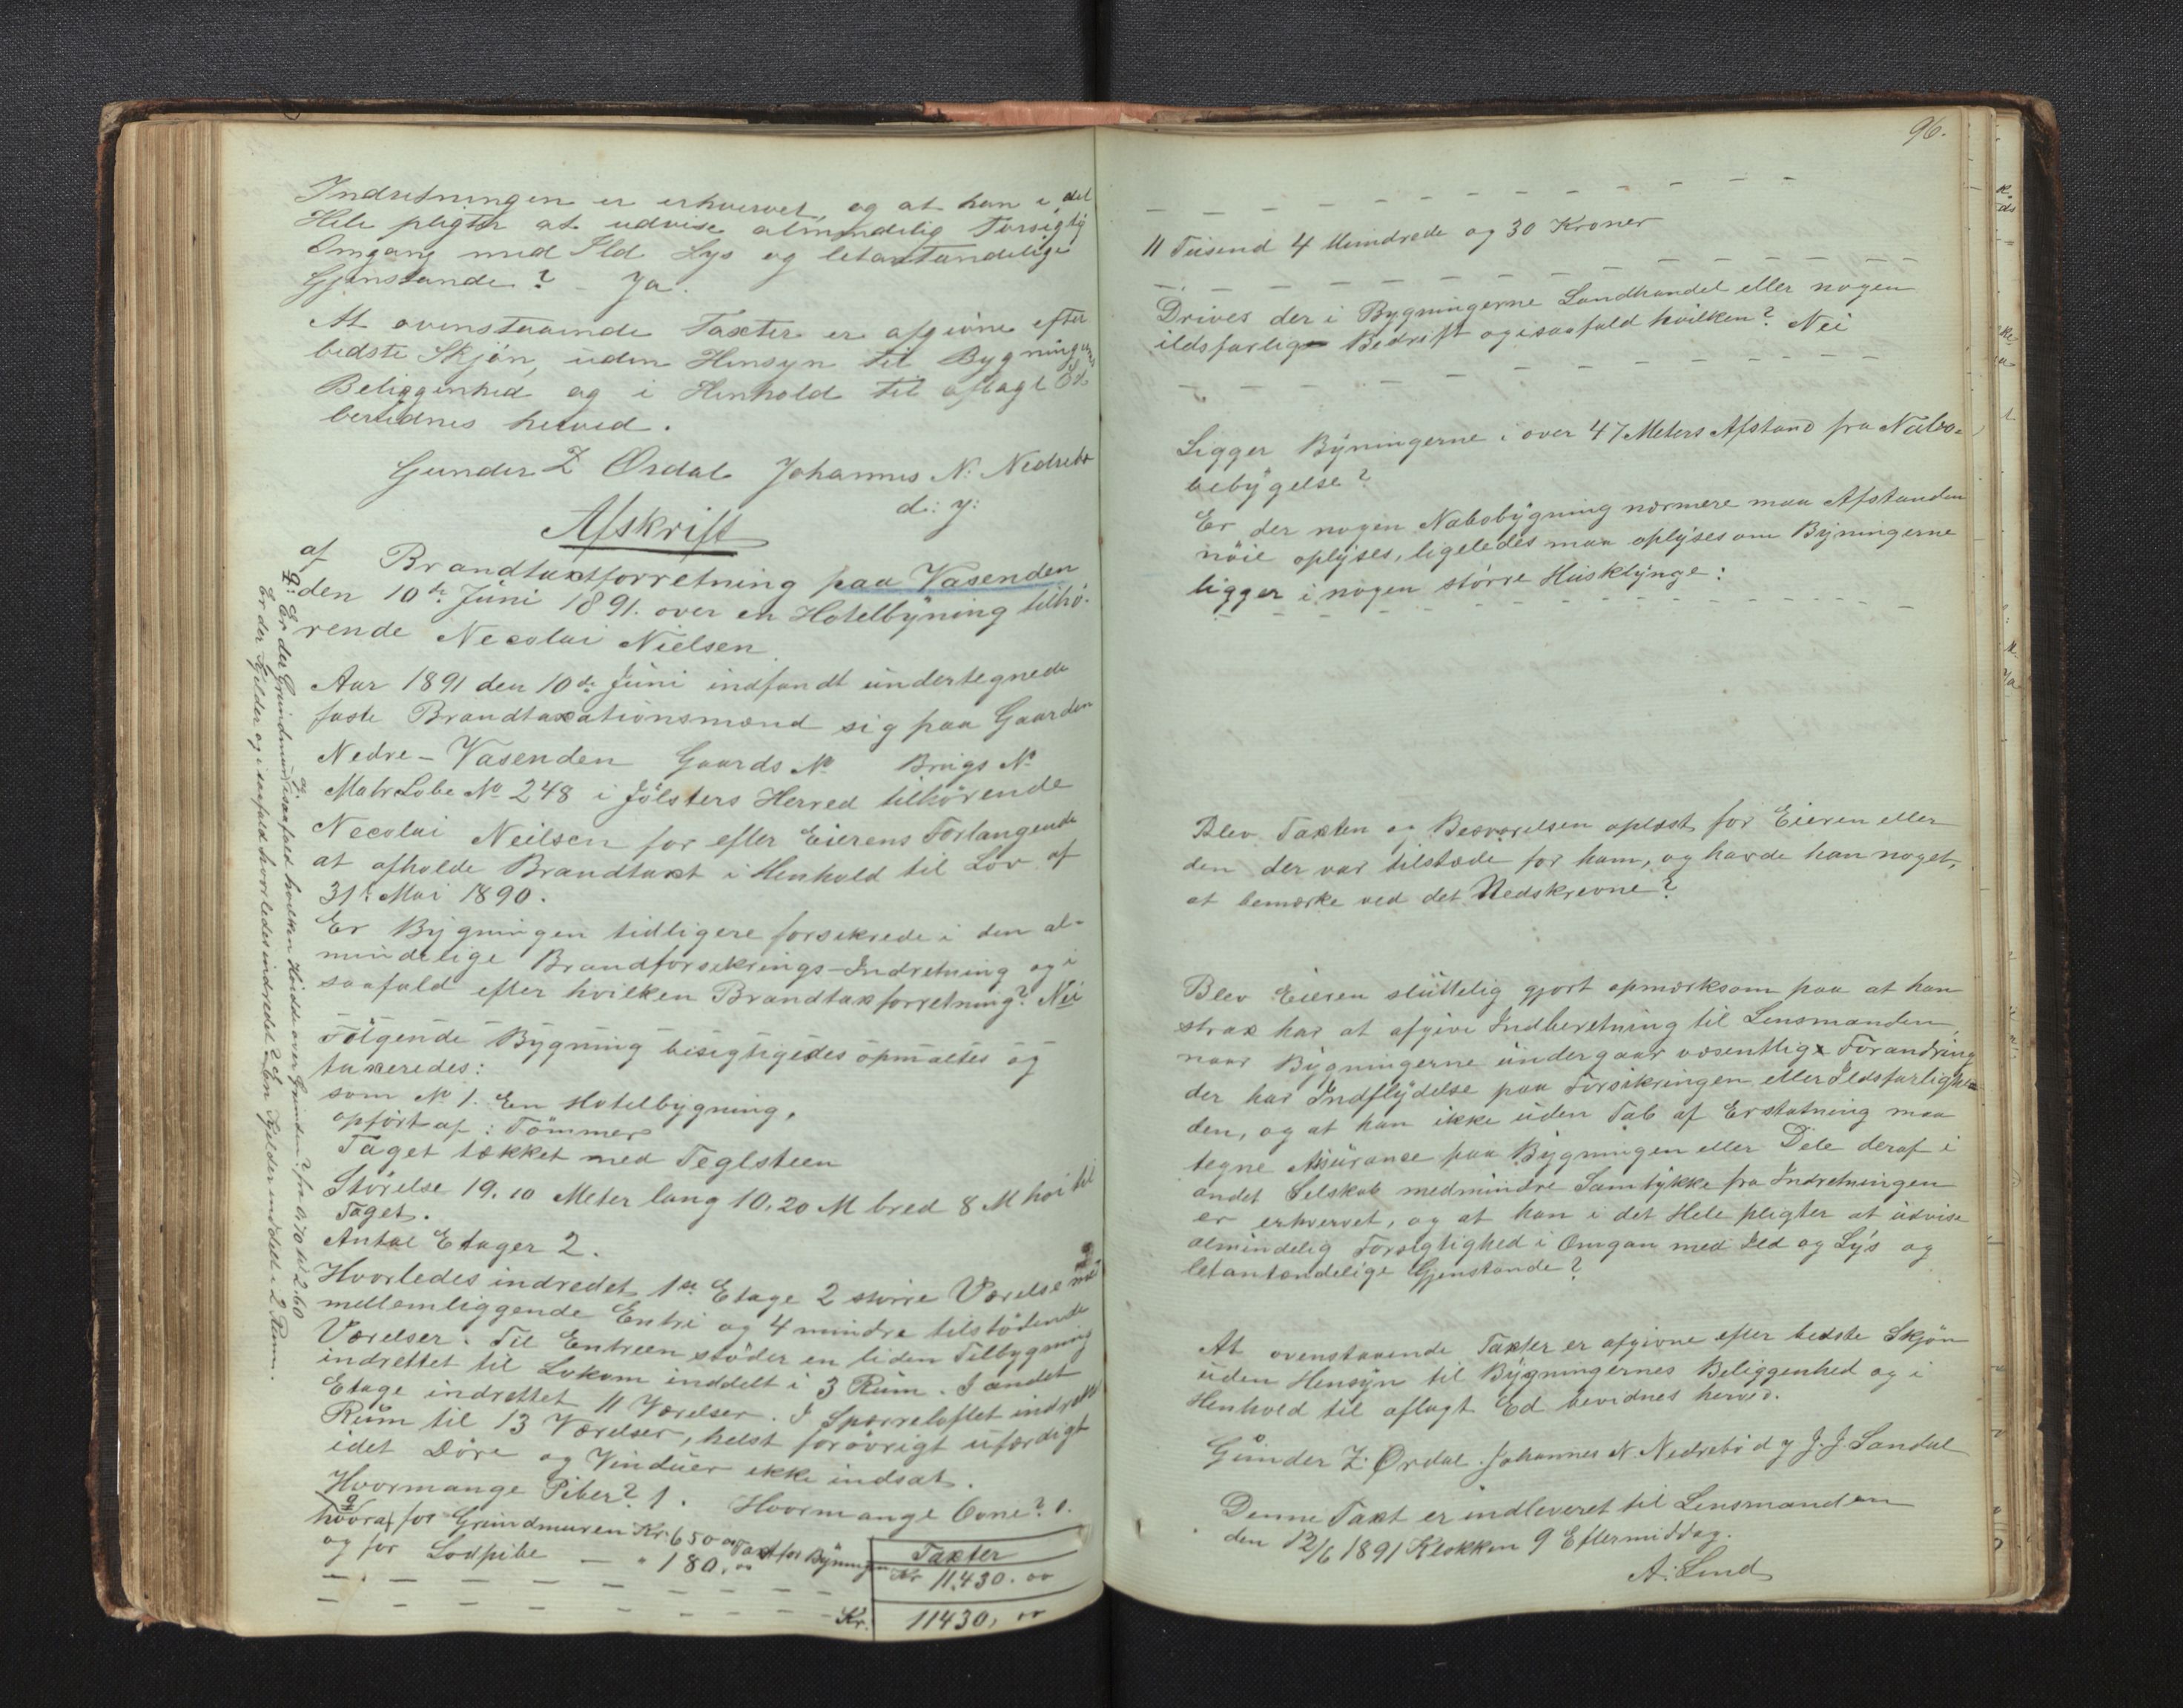 Indretningen er erhvervet, og at han i det
Hele pligter at udvise almindelig Forsigtig
Omgang med Ild Lys og letantændelige
Gjenstande? – Ja.
At ovenstaaende Taxter er afgivne efter
bedste Skjön, uden Hensyn til Bygningernes
Beliggenhed og i Henhold til aflagt Ed
bevidnes herved.
Gunder Z Ørdal Johannes N. Nedrebö
d: y:
Afskrift
af Brandtaxtforretning paa Vasenden
den 10de Juni 1891. over en Hotelbyning tilhö-
rende Necolai Nielsen.
Aar 1891 den 10de Juni indfandt undertegnede
faste Brandtaxationsmænd sig paa Gaarden
Nedre-Vasenden Gaards No Brugs No
Matr Löbe No 248 i Jölsters Herred tilhörende
Necolai Neilsen for efter Eierens Forlangende
at afholde Brandtaxt i Henhold til Lov af
31: Mai 1890.
Er Bygningen tidligere forsikrede i den al-
mindelige Brandforsikrings-Indretning og i
saafald efter hvilken Brandtaxforretning? Nei
Fölgende Bygning besigtigedes opmaltes og
taxeredes:
som No 1. En Hotelbygning,
opfört af: Tömmer
Taget tækket med Teglsteen
Störelse 19,10 Meter lang 10,20 M bred 8 M höi til
Taget.
Antal Etager 2.
Hvorledes indredet 1ste Etage 2 större Værelse med
mellemliggende Entri og 4 mindre tilstödende
Værelser. Til Entreen stöder en liden Tilbygning
indrettet til Lokum inddelt i 3 Rum. I andet
Etage indrettet 11 Værelser. I Sperreloftet indrettet
Rum til 13 Værelser, helst forövrigt ufærdigt
idet Döre og Vinduer ikke indsat.
Hvormange Piber? 1. Hvormange Ovne? 0.
hvoraf for Grundmuren Kr. 650 00 Taxt for Byningen
og for Lodpibe — " 180,00
Taxter
Kr 11,430.00
Kr. 11430,00
q: Er der Grundmur og isaafald hvilken Höide over Grunden? fra 0,70 til 2.60
Er der Kjelder og i saafald hvorledes indredet? En Kjelder inddelt i 2 Rum.
96.
11 Tusend 4 Hundrede og 30 Kroner
Drives der i Bygningerne Landhandel eller nogen
ildsfarlig Bedrift og isaafald hvilken? Nei
Ligger Byningerne i over 47 Meters Afstand fra Nabo=
bebygelse?
Er der nogen Nabobygning nærmere maa Afstanden
nöie oplyses, ligeledes maa oplyses om Byningerne
ligger i nogen större Husklynge:
Blev Taxten og Besvarelsen oplæst for Eieren eller
den der var tilstæde for ham, og havde han noget,
at bemærke ved det Nedskrevne?
Blev Eieren sluttelig gjort opmærksom paa at han
strax har at afgive Indberetning til Lensmanden,
naar Bygningerne undergaar væsentlige Forandring
der har Indflydelse paa Forsikringen eller Ildsfarlighe=
den, og at han ikke uden Tab af Erstatning maa
tegne Assurance paa Bygningen eller Dele deraf i
andet Selskab medmindre Samtykke fra Indretningen
er erhvervet, og at han i det Hele pligter at udvise
almindelig Forsigtighed i Omgan med Ild og Lys og
letantændelige Gjenstande?
At ovenstaaende Taxter er afgivne efter bedste Skjön
uden Hensyn til Bygningernes Beliggenhed og i
Henhold til aflagt Ed bevidnes herved.
Gunder Z. Ørdal. Johannes N. Nedrebö d y J. J. Sandal
Denne Taxt er indleveret til Lensmanden
den 12/6 1891 Klokken 9 Eftermiddag.
A. Lund